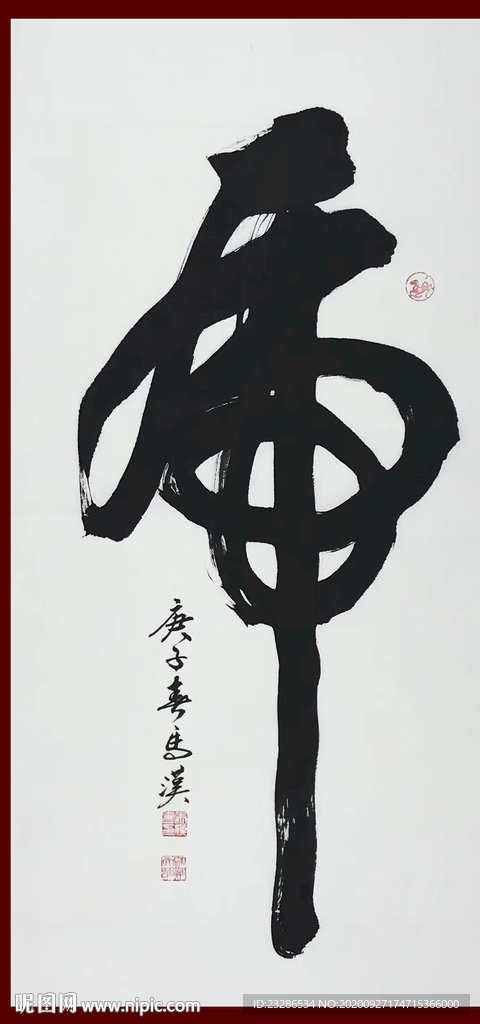 虎
庚子春马漢
昵图网 www.nipic.com
ID:23286534 NO:20200927174715366000